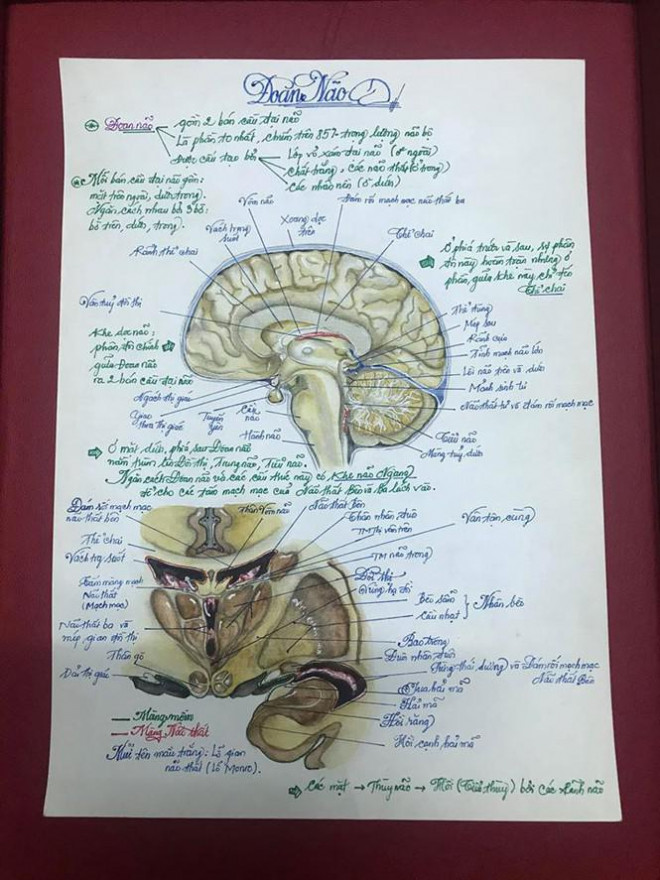 Đoan Não
Đoan não
gồm 2 bán cầu đại não
Là phần to nhất, chiếm trên 85% trọng lượng não bộ
Được cấu tạo bởi
Lớp vỏ xám đại não (ở ngoài)
chất trắng, các não thất (ở trong)
các nhân nền (ở dưới)
Mỗi bán cầu đại não gồm:
mặt trên ngoài, dưới, trong.
Ngăn cách nhau bởi 3 bờ:
bờ trên, dưới, trong.
Vòm não
Đám rối mạch mạc não thất ba
Xoang dọc
trên
Vách trong
suốt
Thể chai
Rãnh thể chai
Ở phía trước và sau, sự phân
chia này hoàn toàn nhưng ở
phần giữa khe này chỉ tới
Thể chai
Vân tuỷ đồi thị
Khe dọc não:
phân chính
giữa Đoan não
ra 2 bán cầu đại não
Thể tùng
Mép sau
Rãnh cựa
Tĩnh mạch não lớn
Lồi não trên và dưới
Mảnh sinh tư
Não thất tư và đám rối mạch mạc
Ngách thị giác
Giao
thoa thị giác
Tuyến
yên
Cầu
não
Hành não
Tiểu não
Màng tuỷ dưới
Ở mặt dưới, phía sau Đoan não
nằm trùm lên Đồi thị, Trung não, Tiểu não.
Ngăn cách Đoan não và các cấu trúc này có Khe não Ngang
để cho các tấm mạch mạc của Não thất Bên và Ba lách vào.
Đám rối mạch mạc
não thất bên
Thân Vòm não
Não thất Bên
Thân nhân đuôi
TM Thị vân trên
Vân tận cùng
Thể chai
Vách trg suốt
TM não trong
Tấm màng mạch
Não thất 3
(Mạch mạc)
Đồi thị
Vùng hạ đồi
Bèo sẫm
Cầu nhạt
Nhân bèo
Não thất ba và
mép gian đồi thị
Bao trong
Thân gỗ
Đuôi nhân đuôi
Dải thị giác
Sừng thái dương và Đám rối mạch mạc
Não thất Bên
Tua hải mã
Hải mã
Hồi răng
Hồi cạnh hải mã
Màng mềm
Màng Não thất
Mũi tên màu trắng: Lỗ gian
não thất (Lỗ Monro).
Các mặt → Thuỳ não → Hồi (Tiểu thuỳ) bởi các Rãnh não